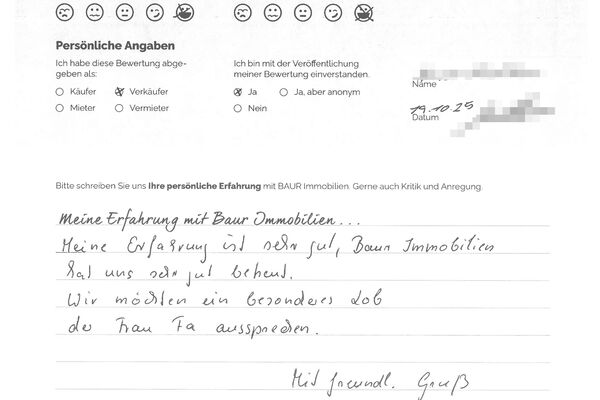 Persönliche Angaben
Ich habe diese Bewertung abge-
geben als:
Käufer
Verkäufer
Mieter
Vermieter
Ich bin mit der Veröffentlichung
meiner Bewertung einverstanden.
Ja
Ja, aber anonym
Nein
Name
19.10.25
Datum
Bitte schreiben Sie uns Ihre persönliche Erfahrung mit BAUR Immobilien. Gerne auch Kritik und Anregung.
Meine Erfahrung mit Baur Immobilien...
Meine Erfahrung ist sehr gut, Baur Immobilien
hat uns sehr gut
Wir möchten ein besonderes Lob
der Frau Fa aussprechen.
Mit freundl. Gruß